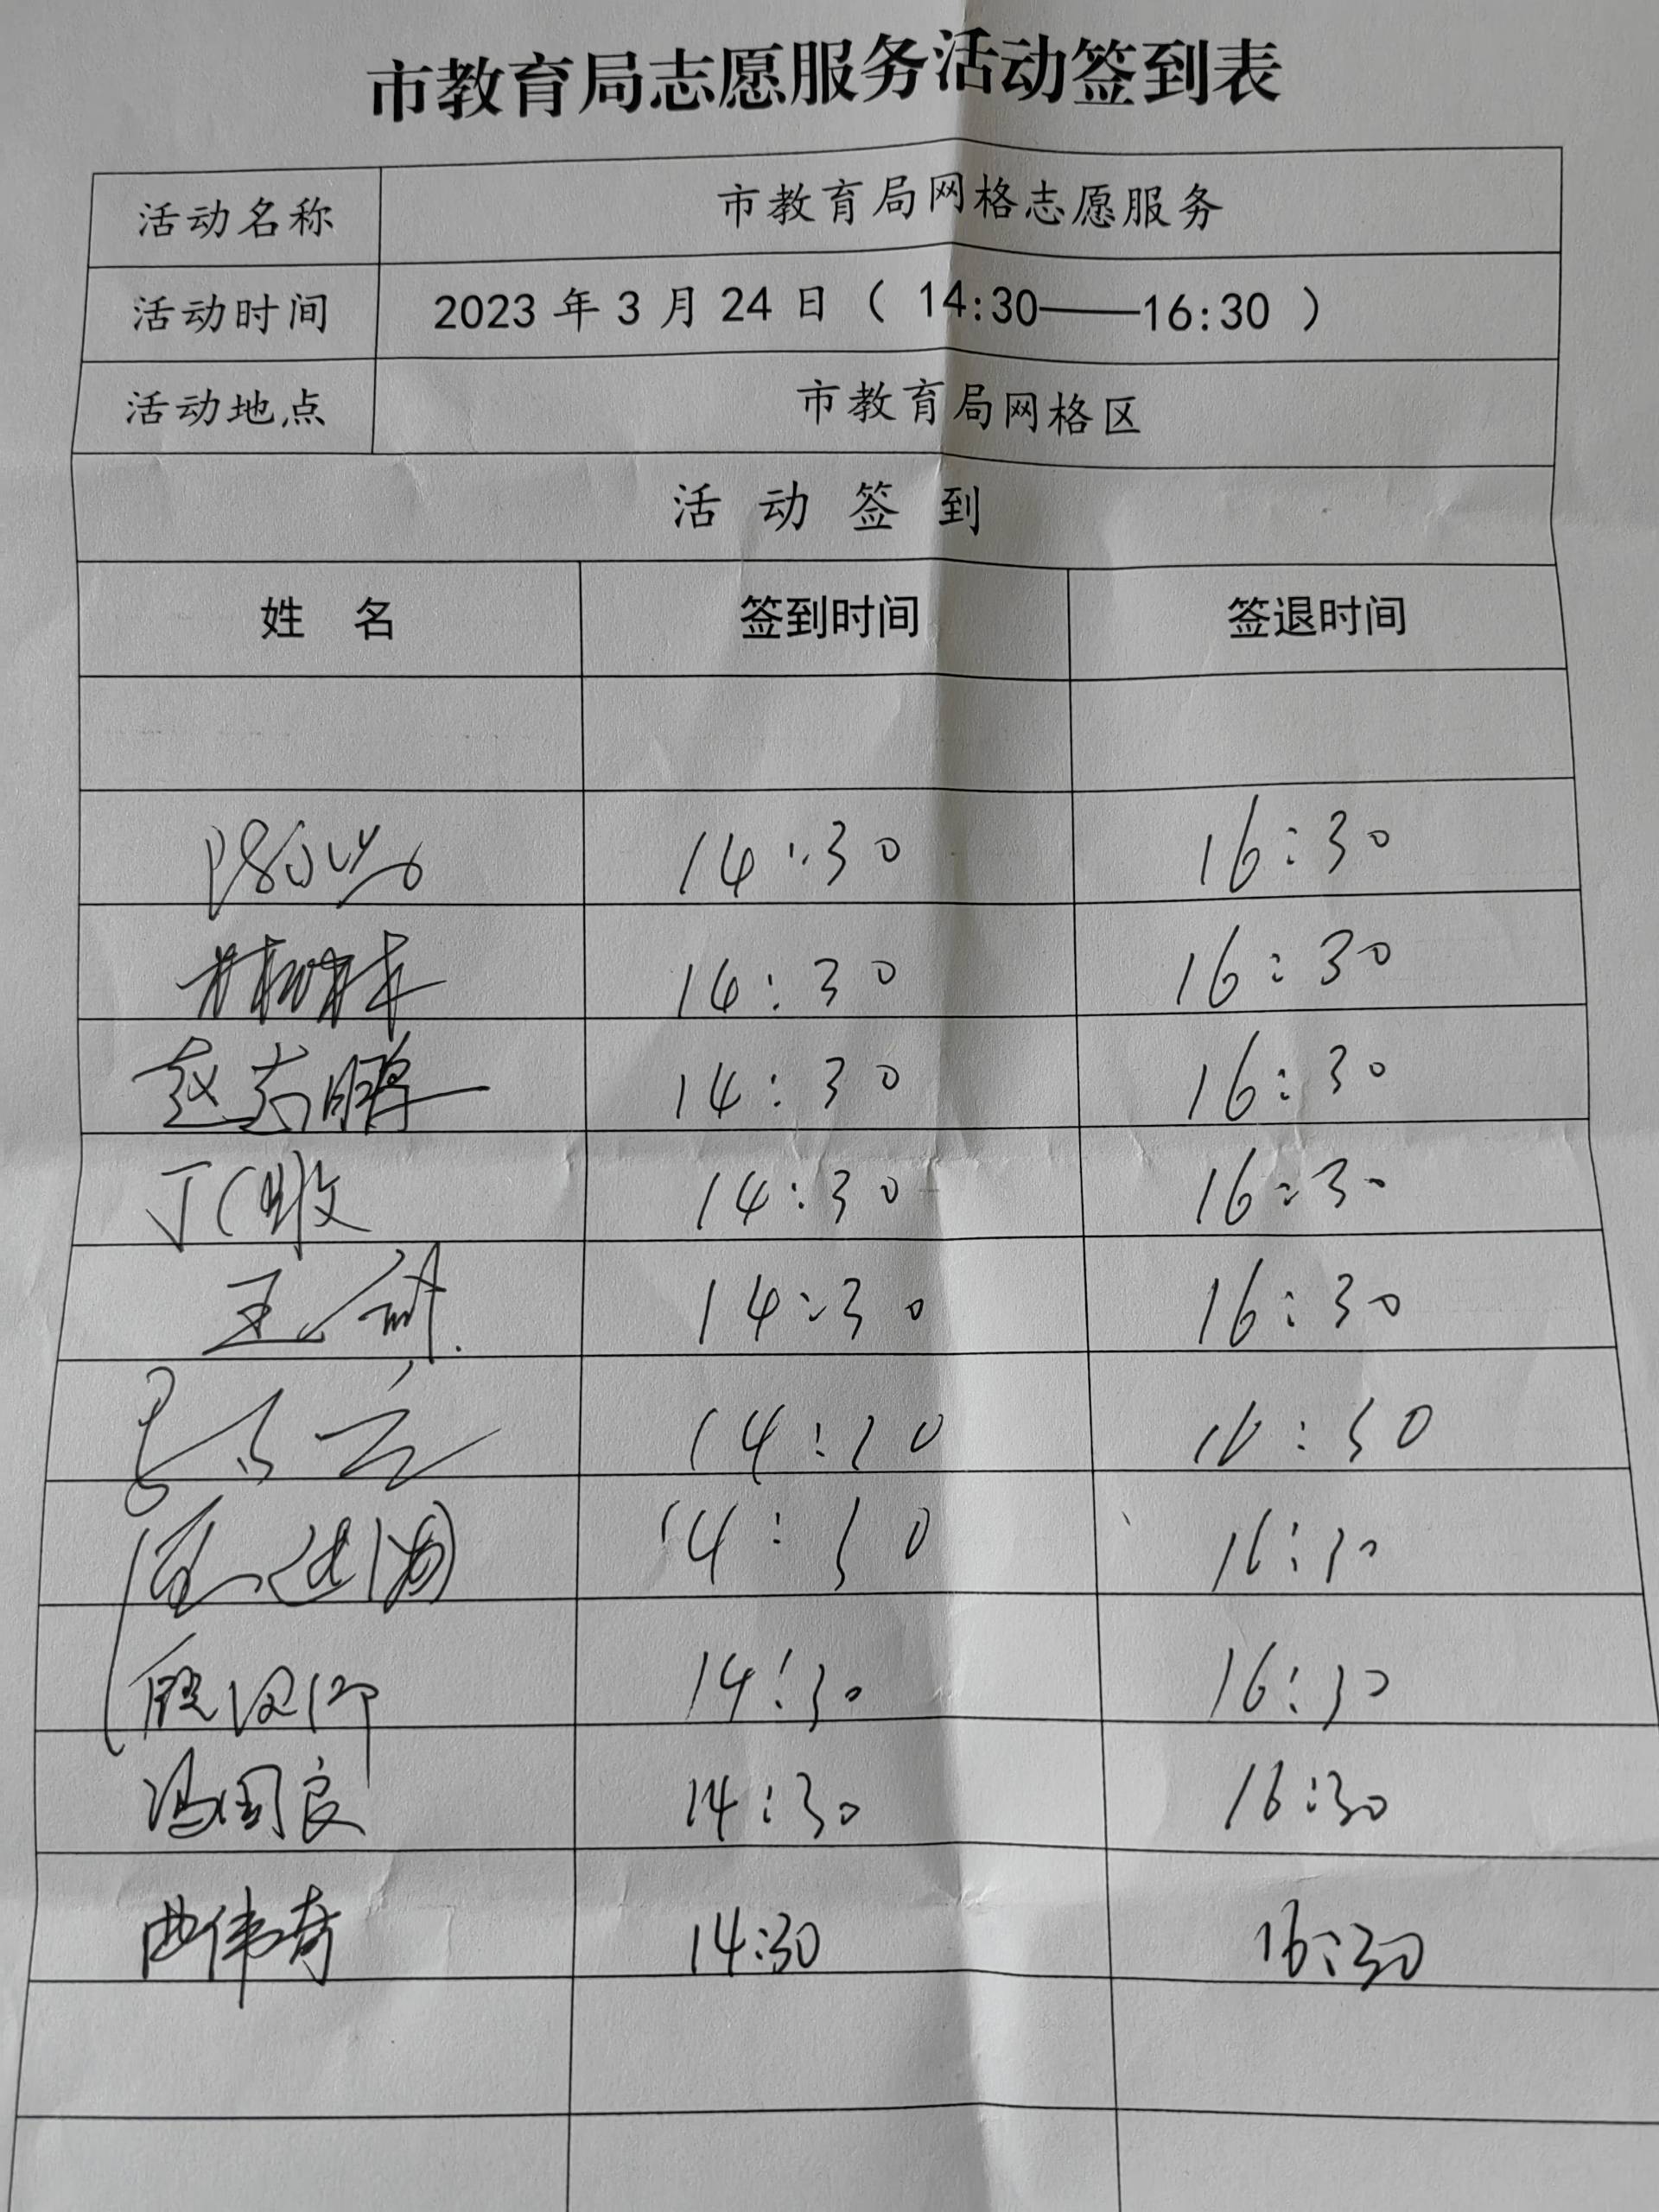 市教育局志愿服务活动签到表
活动名称 市教育局网格志愿服务
活动时间 2023 年 3 月 24 日（ 14:30——16:30 ）
活动地点 市教育局网格区
活 动 签 到
姓 名 签到时间 签退时间
14:30 16:30
14:30 16:30
赵志鹏 14:30 16:30
丁敏 14:30 16:30
王 14:30 16:30
14:30 16:30
14:30 16:30
14:30 16:30
冯国良 14:30 16:30
曲伟奇 14:30 16:30